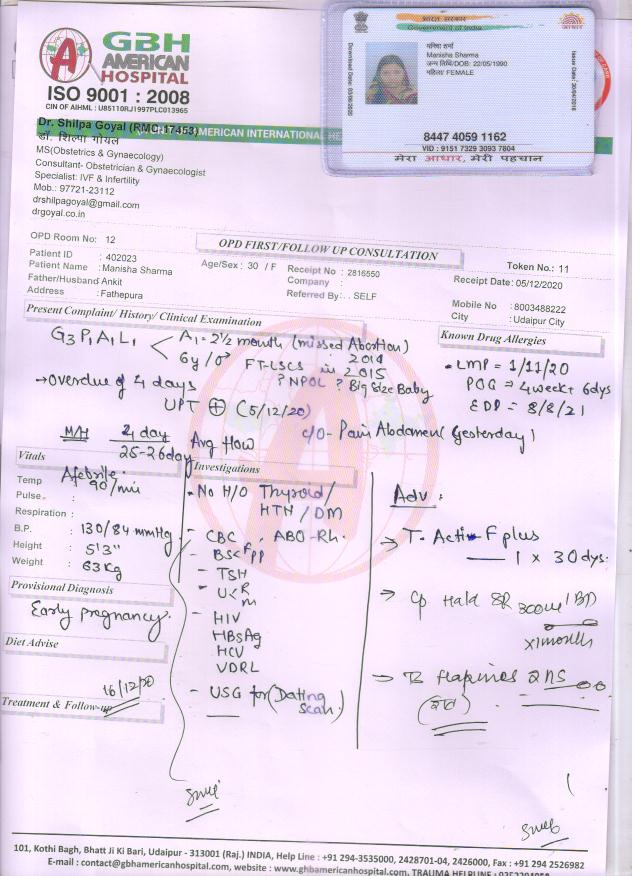 GBH
AMERICAN
HOSPITAL
ISO 9001 : 2008
CIN OF AIHML : U85110RJ1997PLC013965
AMERICAN INTERNATIONAL HE
Dr. Shilpa Goyal (RMC-17453)
डॉ. शिल्पा गोयल
MS(Obstetrics & Gynaecology)
Consultant- Obstetrician & Gynaecologist
Specialist: IVF & Infertility
Mob.: 97721-23112
drshilpagoyal@gmail.com
drgoyal.co.in
भारत सरकार
Government of India
मनिषा शर्मा
Manisha Sharma
जन्म तिथि/DOB: 22/05/1990
महिला/ FEMALE
8447 4059 1162
VID : 9151 7329 3093 7804
मेरा आधार, मेरी पहचान
OPD Room No: 12
OPD FIRST/FOLLOW UP CONSULTATION
Token No.: 11
Patient ID : 402023
Patient Name : Manisha Sharma
Father/Husband Ankit
Address : Fathepura
Age/Sex : 30 / F
Receipt No : 2816550
Company :
Referred By: . SELF
Receipt Date: 05/12/2020
Mobile No : 8003488222
City : Udaipur City
Present Complaint/ History/ Clinical Examination
Known Drug Allergies
G3P1A1L1
A1 = 2½ month (missed Abortion)
FT-LSCS in 2015
? NPOL ? Big Size Baby
→ Overdue of 4 days
UPT ⊕ (5/12/20)
LMP = 1/11/20
POG = 4week + 6dys
EDD = 8/8/21
M/H
25-26day
Avg flow
c/o - Pain Abdomen (yesterday)
Vitals
Temp : Afebrile
Pulse. : 90/min
Respiration :
B.P. : 130/84 mmHg
Height : 5'3"
Weight : 63kg
Provisional Diagnosis
Early pregnancy.
Diet Advise
16/12/20
Treatment & Follow-up
Investigations
No H/O Thyroid/
HTN / DM
- CBC , ABO-Rh.
- TSH
- HIV
HBsAg
HCV
VDRL
- USG for (Dating
scan)
Adv :
→ T. Activ-F plus
1 x 30 dys.
x1 months
101, Kothi Bagh, Bhatt Ji Ki Bari, Udaipur - 313001 (Raj.) INDIA, Help Line : +91 294-3535000, 2428701-04, 2426000, Fax : +91 294 2526982
E-mail : contact@gbhamericanhospital.com, website : www.ghbamericanhospital.com, TRAUMA HELPLINE :